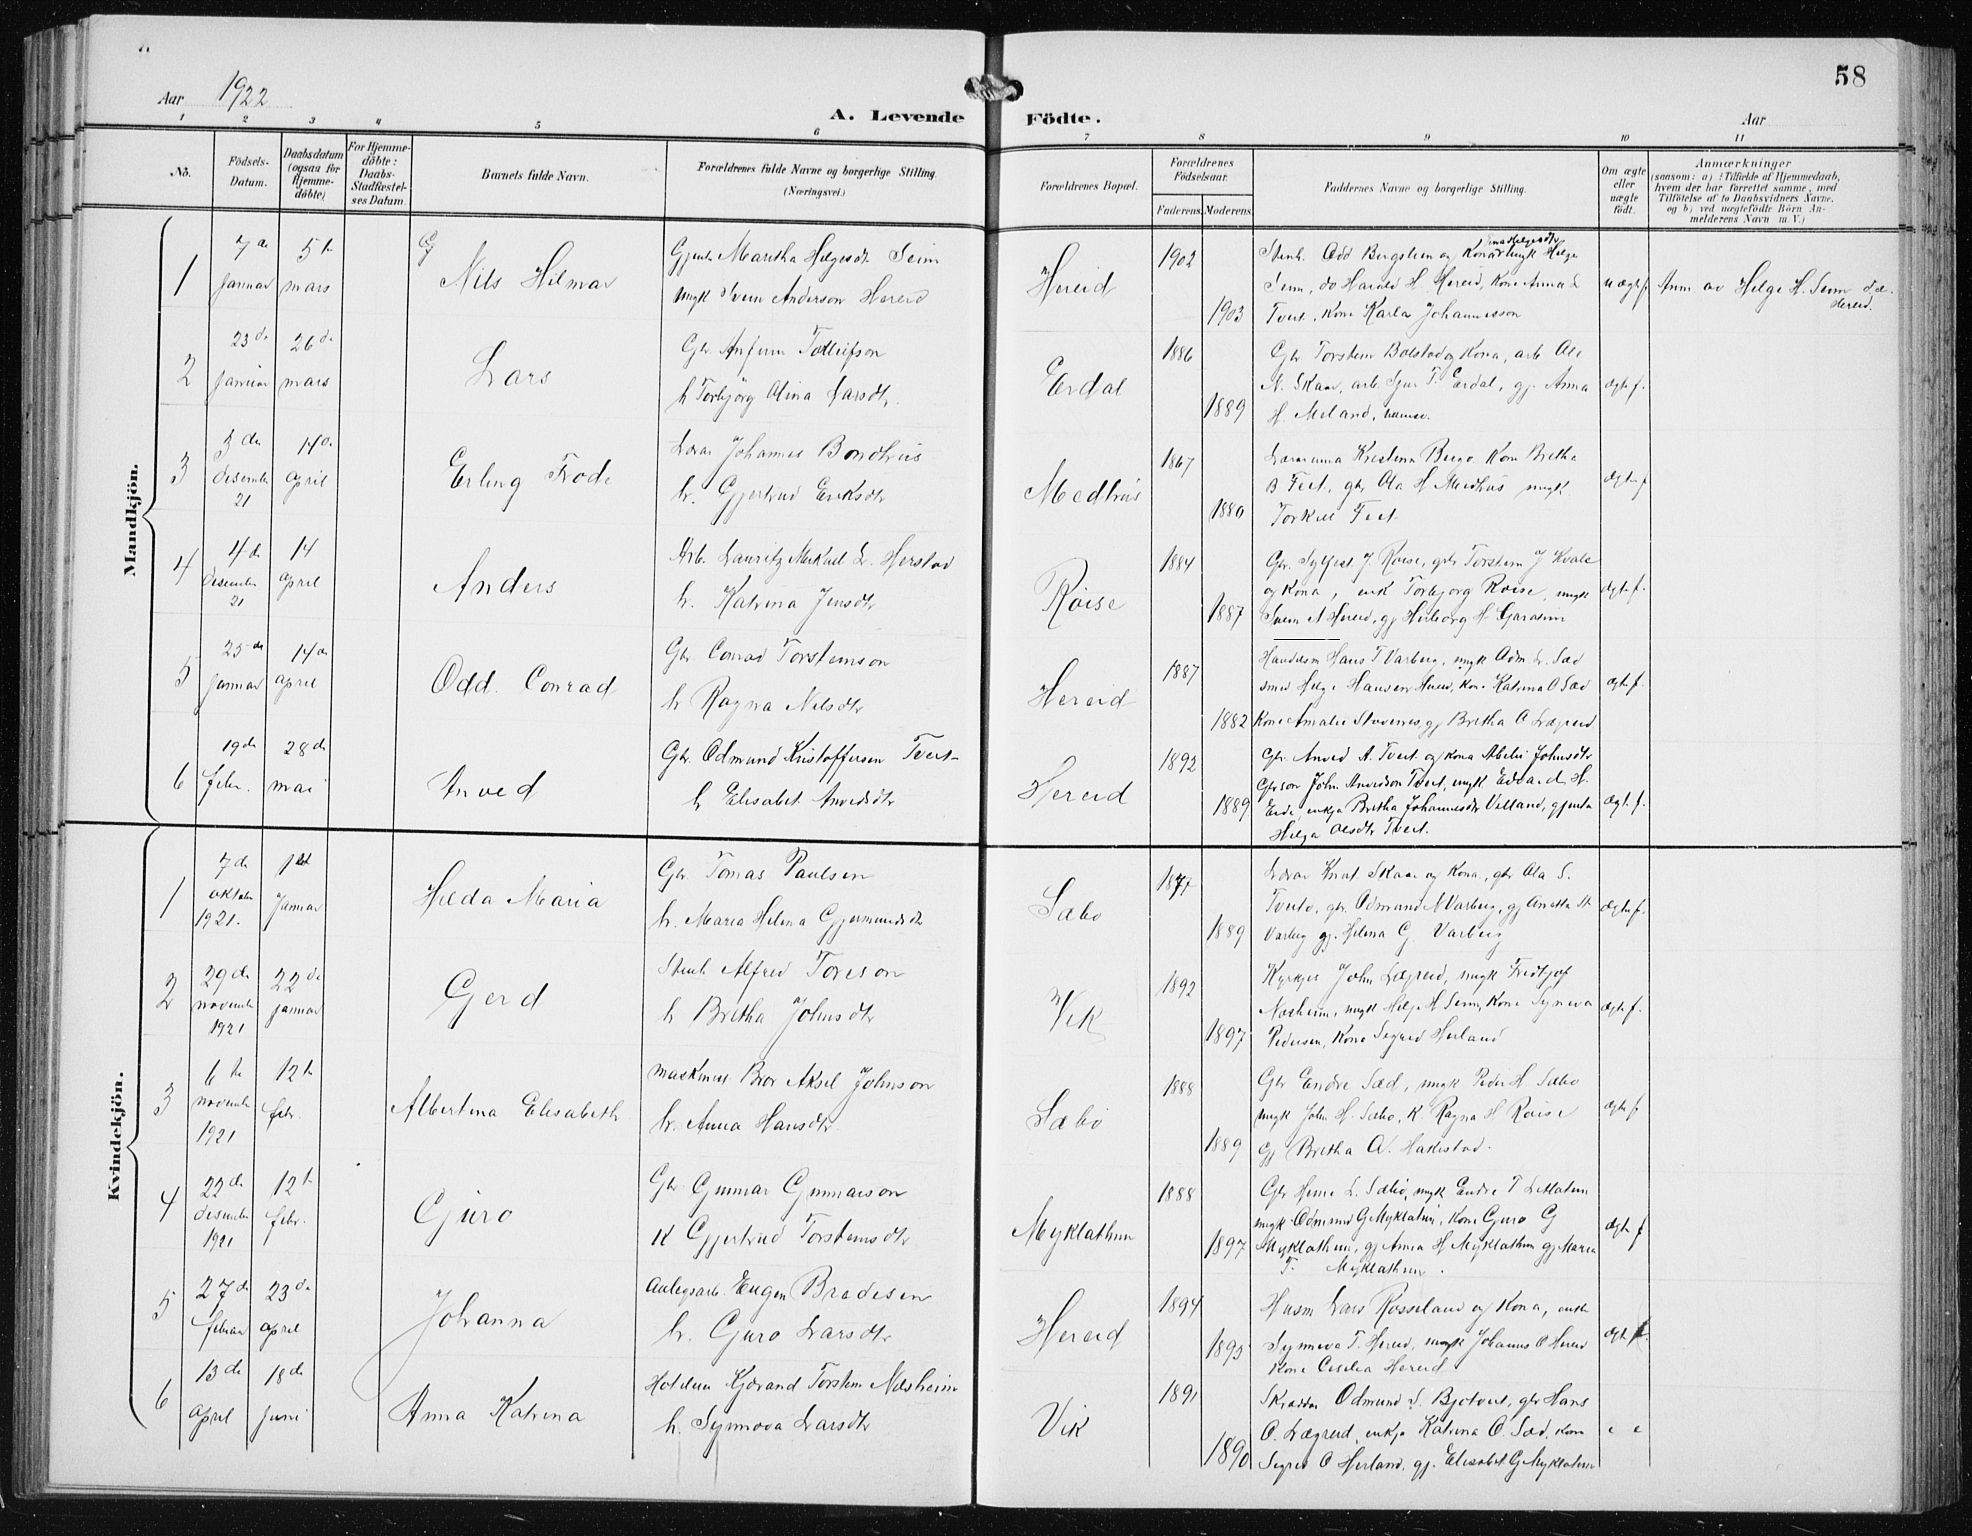 58
Aar 1922
A. Levende Födte.
Aar
1 2 3 4 5 6 7 8 9 10 11
No.
Födsels-Datum.
Daabsdatum (ogsaa for Hjemme-döbte)
For Hjemme-döbte: Daabs-Stadfæstel-ses Datum.
Barnets fulde Navn.
Forældrenes fulde Navne og borgerlige Stilling.
(Næringsvei.)
Forældrenes Bopæl.
Forældrenes Födselsaar.
Faderens. Moderens.
Faddernes Navne og borgerlige Stilling.
Om ægte eller uægte födt.
Anmærkninger
(saasom: a) i Tilfælde af Hjemmedaab,
hvem der har forrettet samme, med
Tilföielse af to Daabsvidners Navne.
og b) ved uægtefödte Börn An-
melderens Navn m. V.)
Mandkjön.
1 7de Januar 5te mars
Nils Hilmar
Gjente Martha Helgesdtr Seim
ungk Svein Anderson Hereid
Hereid
1902
1903
Tveit, kone Karla Johannesson
uægte f.
Anm. av Helge H. Seim
Hereid.
2 23de januar 26de mars
Lars
Gbr. Anfinn Tolleifson
h Torbjörg Olina Larsdtr.
Erdal
1886
1889
Gbr Torstein Bolstad og Kona, arb. Ole
N. Skaar, arb. Sjur T. Erdal, gj. Anna
H. Meland,
ægte f.
3 3de desember 21 14de april
Erling Frode
Lærar Johannes Bondhus
h. Gjertrud Eriksdtr
Medhus
1867
1880
Bergo Kone Bretha
Tveit, gbr Ola H Medhus ungk
Torkell Tveit
ægte f
4 4de desember 21 14 april
Anders
Arb. Lauritz Mikael L. Herstad
h. Katrina Jensdtr
Röise
1884
1887
Gbr. Sylfest J. Röise, gbr Torstein J Kvale
og Kona, enk Torbjörg Röise, ungk
Svein A Hereid, gj Herborg H Garatun
ægte f.
5 25de Januar 14de april
Odd. Conrad
Gbr Conrad Torsteinson
h Ragna Nilsdtr
Hereid
1887
1882
Handelsm Hans T Varberg, ungk Odm L. Sæd
smed Helge Hansen Hereid, kone Katrina O Sæd
Kone Amalie Stavenes, gj Bretha O Lægreid
ægte f.
6 19de febr. 28de mai
Anved
Gbr. Odmund Kristoffersen Tveit
h Elisabet Anvedsdtr
Hereid
1892
1889
Gbr. Anved A. Tveit og kona Abelie Johnsdtr
Gbrson John Anvedson Tveit, ungk Edvard H.
Eide, enkja Bretha Johannesdtr Velland, gjenta
Helga Olsdtr Tveit.
ægte f.
Kvindekjön.
1 7de oktober 1921. 1ste Januar
Hilda Maria
Gbr. Tomas Paulsen
h. Maria Helena Gjermundsdtr
Sæbö
1877
1889
Lærar Knut Skaar og Kona, gbr Ola S.
Tveito, gbr. Odmund N Varberg, gj
Varberg gj. Helena G. Varberg
ægte f.
2 29de november 1921 22de januar
Gerd
Stenh Alfred Toreson
h Bretha Johnsdtr
Vik
1892
1897
Kyrkjes John Lægreid, ungk Fridtjof
Næsheim, ungk Helje H Seim, Kone Synneva
Pedersen, Kone Sigrid Herland
ægte f.
3 6te november 1921 12te febr.
Albertina Elisabeth
maskinist Bror Aksel Johnson
h. Anna Hansdtr
Sæbö
1888
1889
Gbr Endre Sæd, ungk Peder H Sæbö
ungk John H. Sæbö, K Ragna H Röise
gj Bretha O. Hakestad.
ægte f
4 22de desember 1921 12te febr.
Guro
Gbr. Gunnar Gunnarson
K Gjertrud Torsteinsdtr
Myklathun
1888
1897
Gbr Heine L. Sæbö, ungk Endre T Litlatun
ungk Odmund G Myklatun, Kone Guro G
Myklathun, gj Anna H Myklathun gj Maria
T. Myklathun.
ægte f
5 27de februar 23de april
Johanna
Anlegsarb. Eugen Bredesen
h. Guro Larsdtr
Hereid
1894
1893
Husm Lars Rosseland og Kona, enke
Synneva T. Hereid, ungk Johannes O Hereid
Kone Cesilia Hereid
ægte f.
6 13de april 18de Juni
Anna Katrina
Hoteleier Kjærand Torstein Næsheim
h. Synnova Larsdtr
Vik
1891
1890
Skrædder Odmund S. Bjotveit, gbr Hans
O. Lægreid, enkja Katrina O. Sæd, Kone
Sigrid O Herland, gj. Elisabet G Myklatun